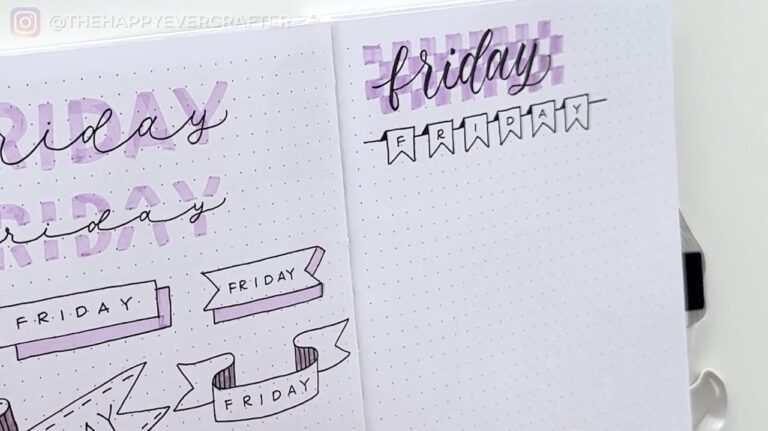 @THEHAPPYEVERCRAFTER
RIDAY
riday
RIDAY
riday
FRIDAY
FRIDAY
AY
FRIDAY
friday
FRIDAY